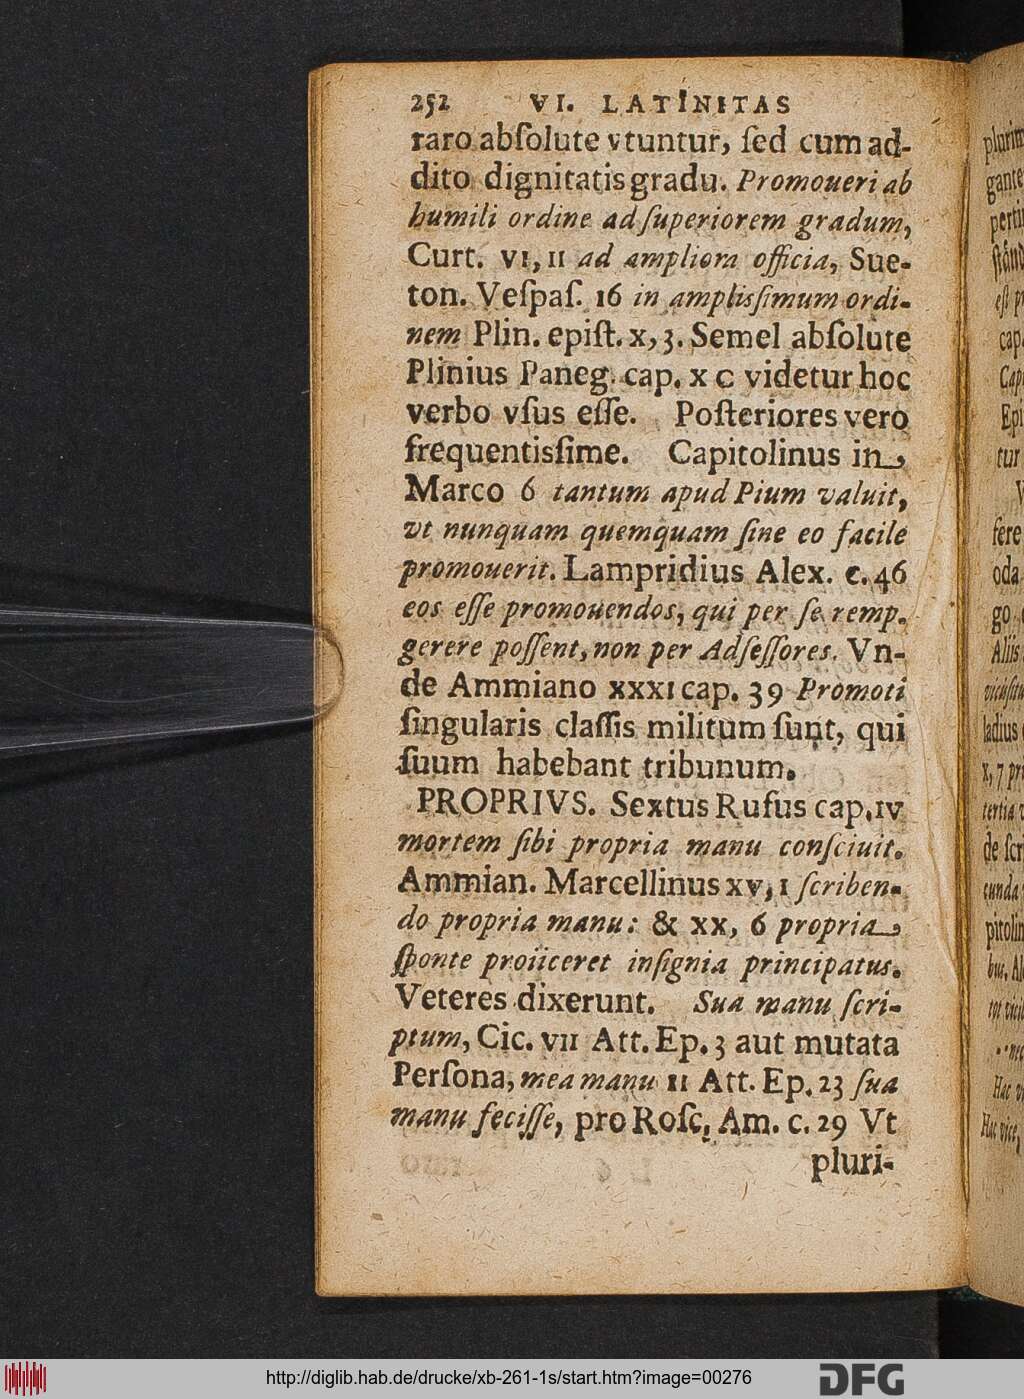 252 VI. LATINITAS
raro abſolute vtuntur, ſed cum ad-
dito dignitatis gradu. Promoueri ab
humili ordine ad ſuperiorem gradum,
Curt. VI, II ad ampliora officia, Sue-
ton. Veſpaſ. 16 in amplisſimum ordi-
nem Plin. epiſt. x, 3. Semel abſolute
Plinius Paneg. cap. XC videtur hoc
verbo vſus eſſe. Poſteriores vero
frequentisſime. Capitolinus in
Marco 6 tantum apud Pium valuit,
vt nunquam quemquam ſine eo facile
promouerit. Lampridius Alex. c. 46
eos eſſe promouendos, qui per ſe remp.
gerere poſſent, non per Adſeſſores. Vn-
de Ammiano XXXI cap. 39 Promoti
ſingularis claſſis militum ſunt, qui
ſuum habebant tribunum.
PROPRIVS. Sextus Rufus cap. IV
mortem ſibi propria manu conſciuit.
Ammian. Marcellinus XV, 1 ſcriben-
do propria manu: & XX, 6 propria
ſponte proiiceret inſignia principatus.
Veteres dixerunt. Sua manu ſcri-
ptum, Cic. VII Att. Ep. 3 aut mutata
Perſona, mea manu II Att. Ep. 23 ſua
manu feciſſe, pro Roſc. Am. c. 29 Vt
pluri-
plurim
gante
perti
cap
Epi
tur
fere
oda
go
Aliis
ladius
x, 7 pri
tertia
de ſcr
cunda
pitolin
bus, Al
Hac
Hac vice,
http://diglib.hab.de/drucke/xb-261-1s/start.htm?image=00276
DFG